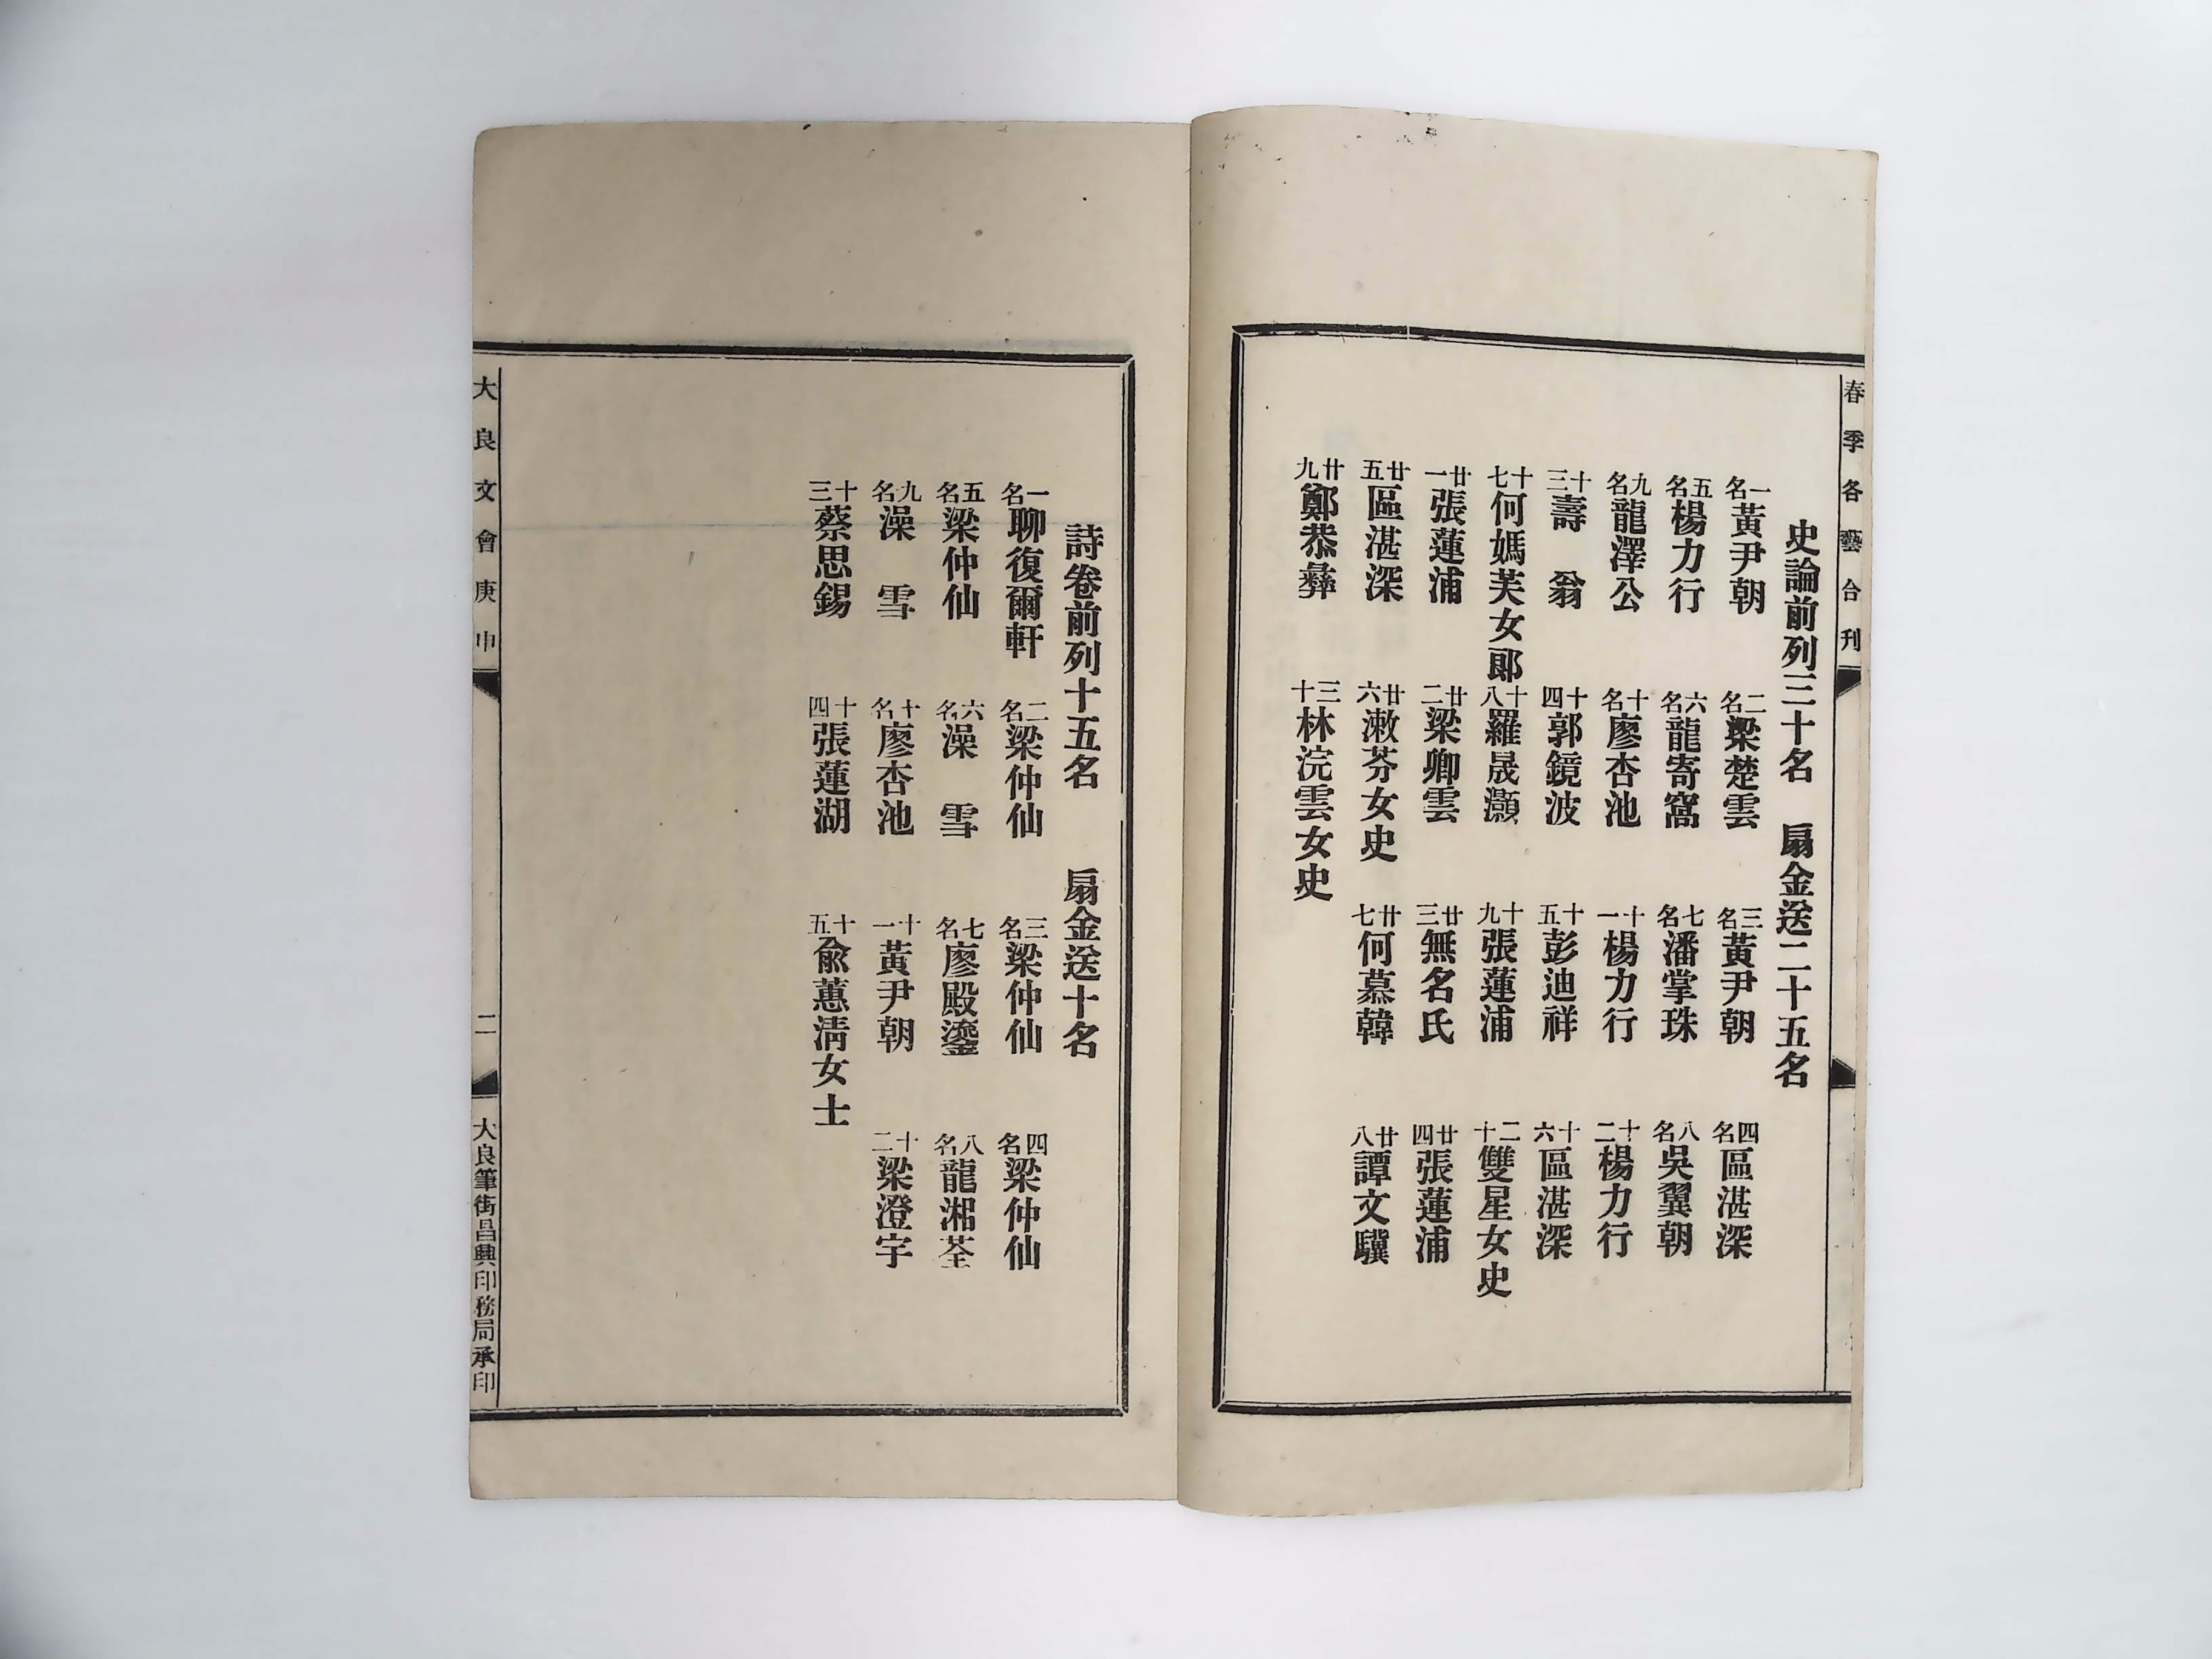 春季各藝合刊
史論前列三十名　扇金送二十五名
一名黃尹朝　二名梁楚雲　三名黃尹朝　四名區湛深
五名楊力行　六名龍寄窩　七名潘掌珠　八名吳翼朝
九名龍澤公　十名廖杏池　十一楊力行　十二楊力行
十三壽　翁　十四郭鏡波　十五彭迪祥　十六區湛深
十七何媽芙女郎　十八羅晟灝　十九張蓮浦　二十雙星女史
廿一張蓮浦　廿二梁卿雲　廿三無名氏　廿四張蓮浦
廿五區湛深　廿六漱芬女史　廿七何慕韓　廿八譚文驥
廿九鄭恭彝　三十林浣雲女史
詩卷前列十五名　扇金送十名
一名聊復爾軒　二名梁仲仙　三名梁仲仙　四名梁仲仙
五名梁仲仙　六名澡　雪　七名廖殿鎏　八名龍湘荃
九名澡　雪　十名廖杏池　十一黃尹朝　十二梁澄宇
十三蔡思錫　十四張蓮湖　十五兪蕙淸女士
大良文會庚申　二　大良筆街昌興印務局承印